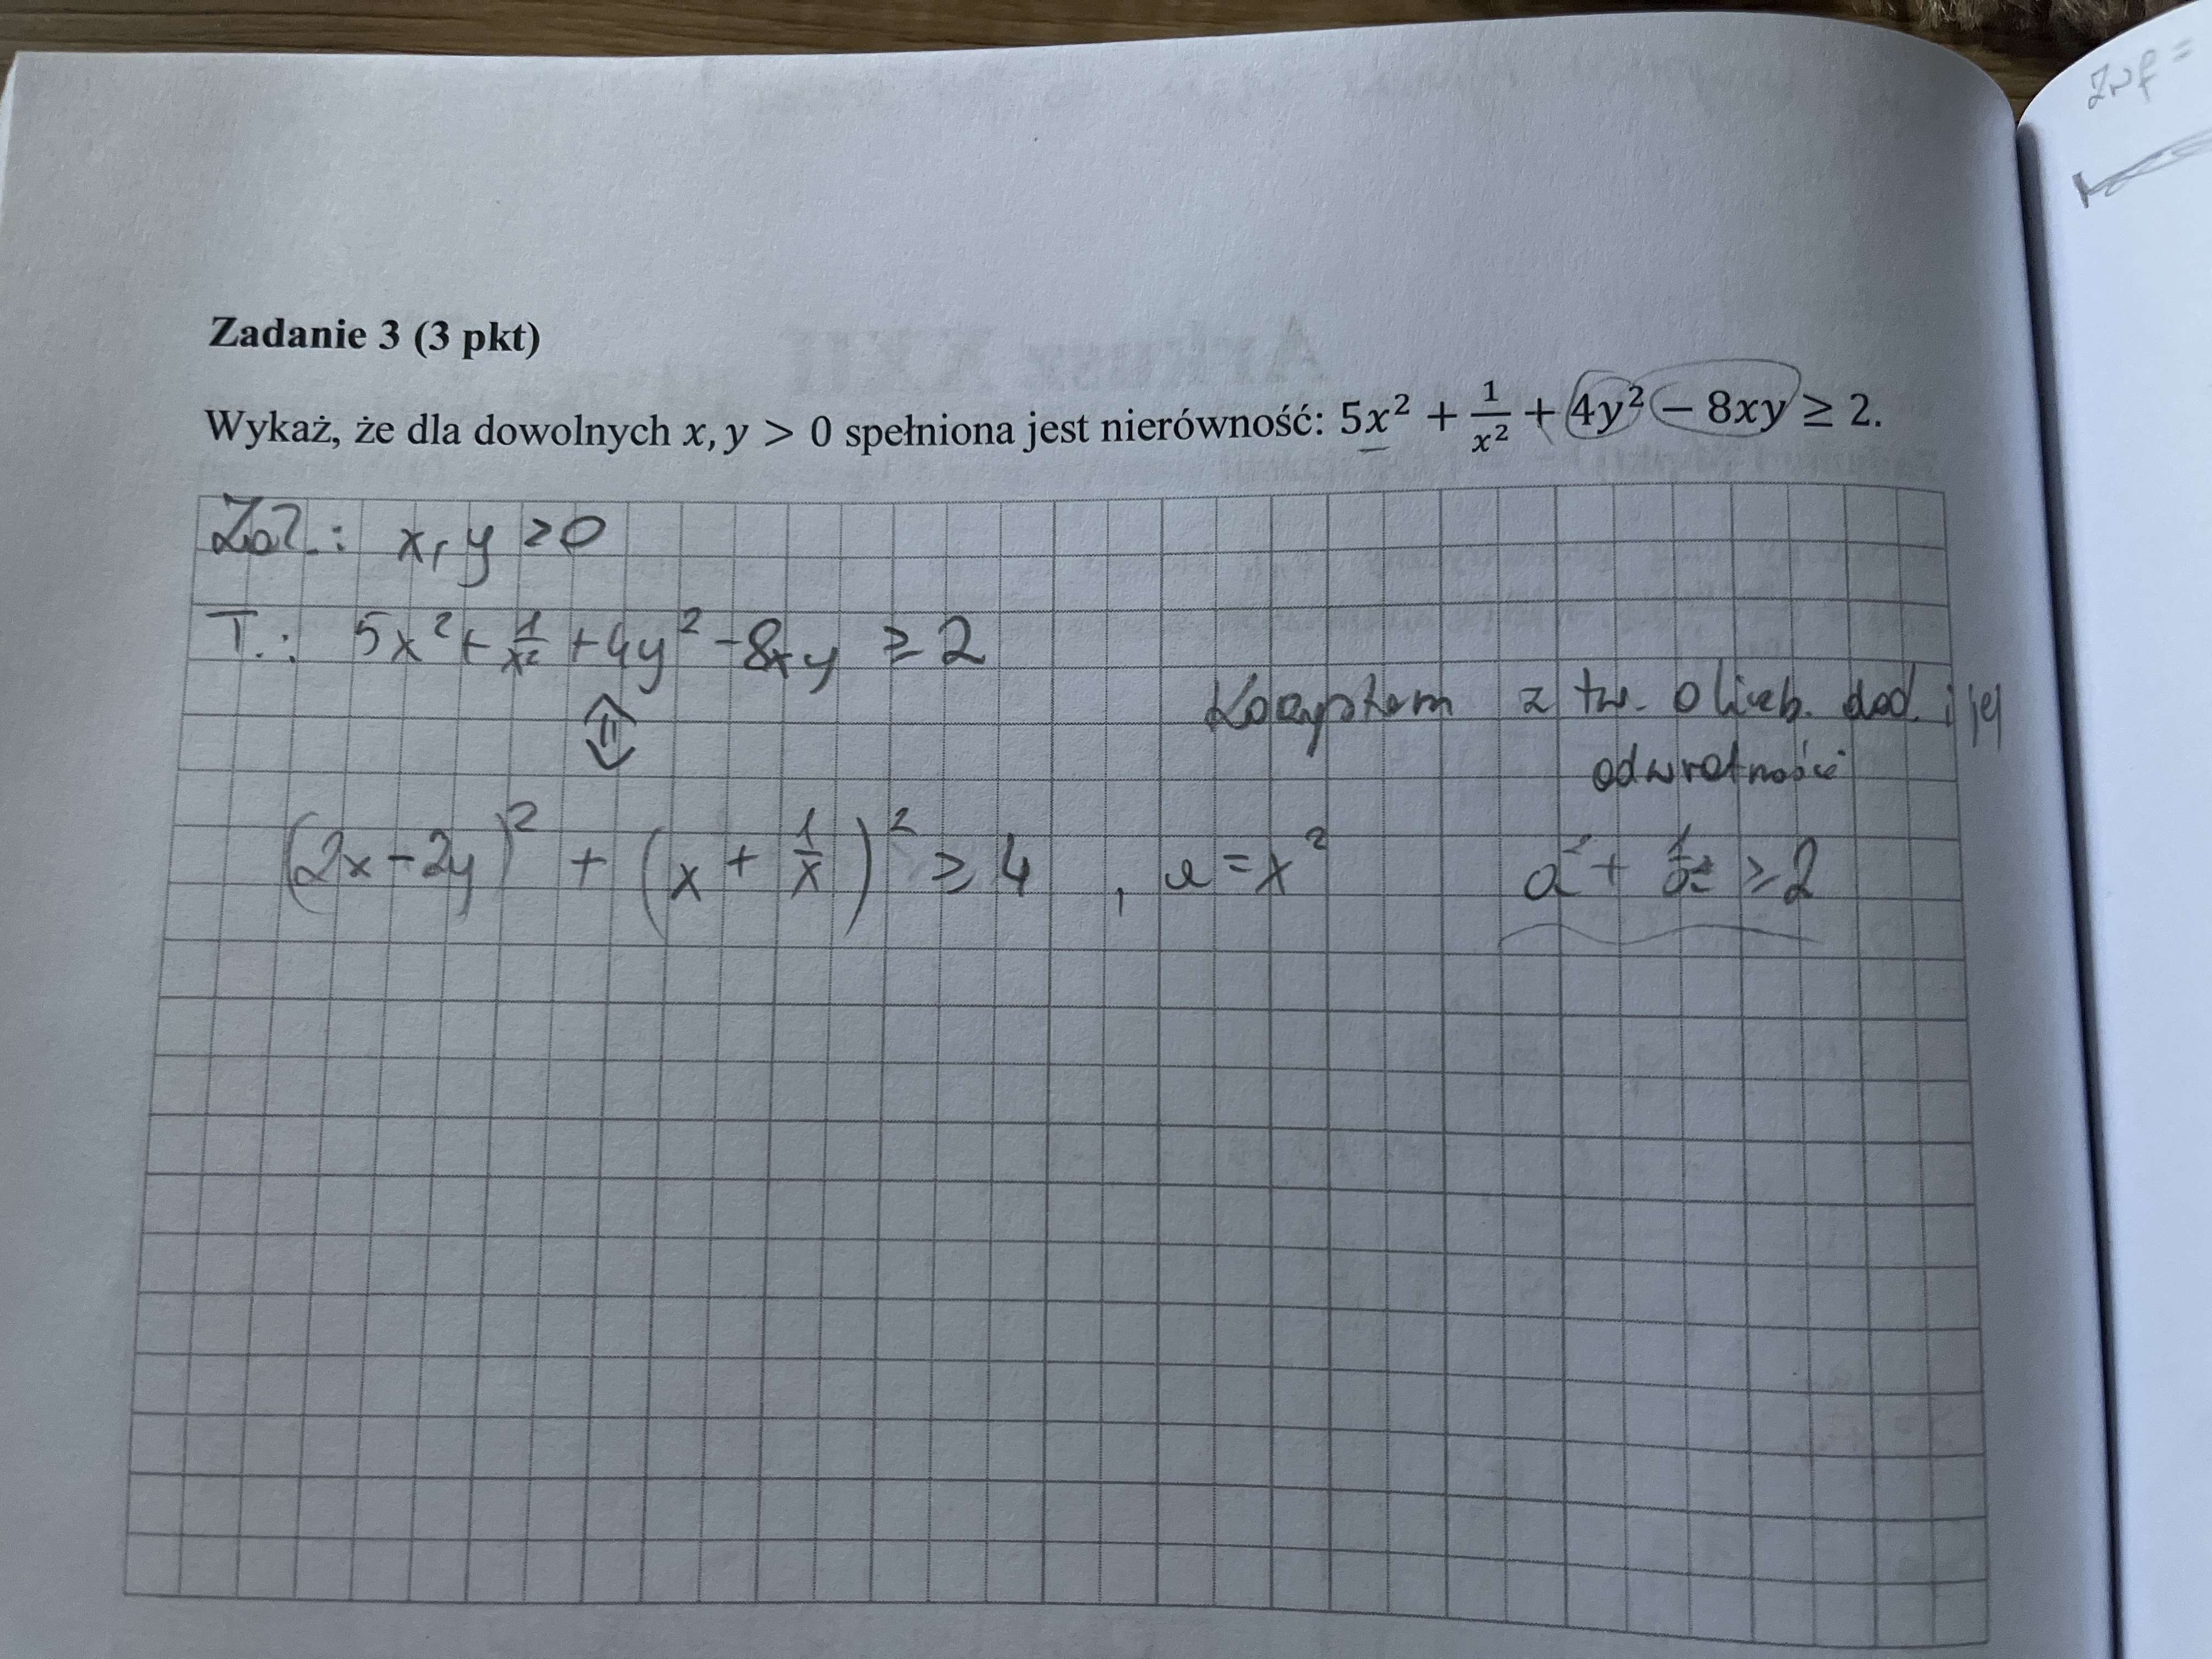 Zwp =
Zadanie 3 (3 pkt)
Wykaż, że dla dowolnych x, y > 0 spełniona jest nierówność: 5x² + 1/x² + 4y² − 8xy ≥ 2.
Zał.: x, y > 0
T.: 5x² + 1/x² + 4y² - 8xy ≥ 2
⇕
Korzystam z tw. o liczb. dod. i jej
odwrotności
(2x - 2y)² + (x + 1/x)² ≥ 4 , a = x² a² + 1/a² ≥ 2